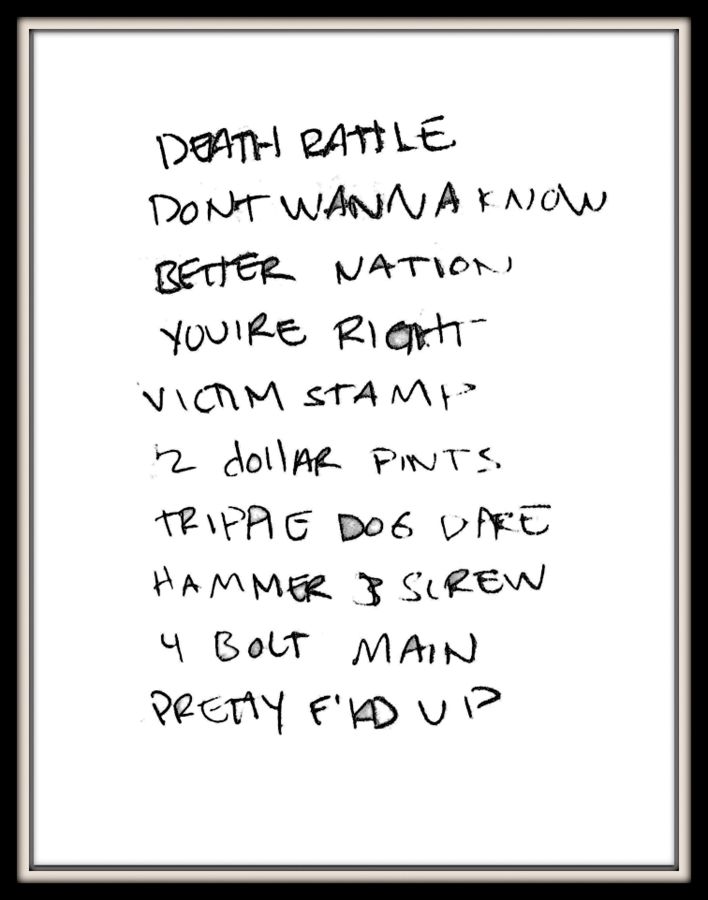 DEATH RATTLE
DONT WANNA KNOW
BETTER NATION
YOU'RE RIGHT
VICTIM STAMP
2 dollAR PINTS
TRIPPLE DOG DARE
HAMMER & SCREW
4 BOLT MAIN
PRETTY F'KD UP